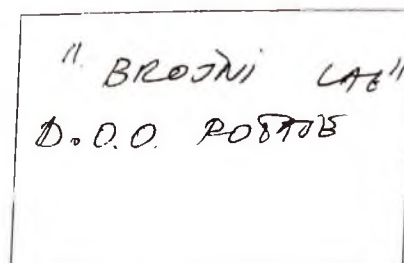 " BROJNI LAE"
D.O.O. ROŽAJE